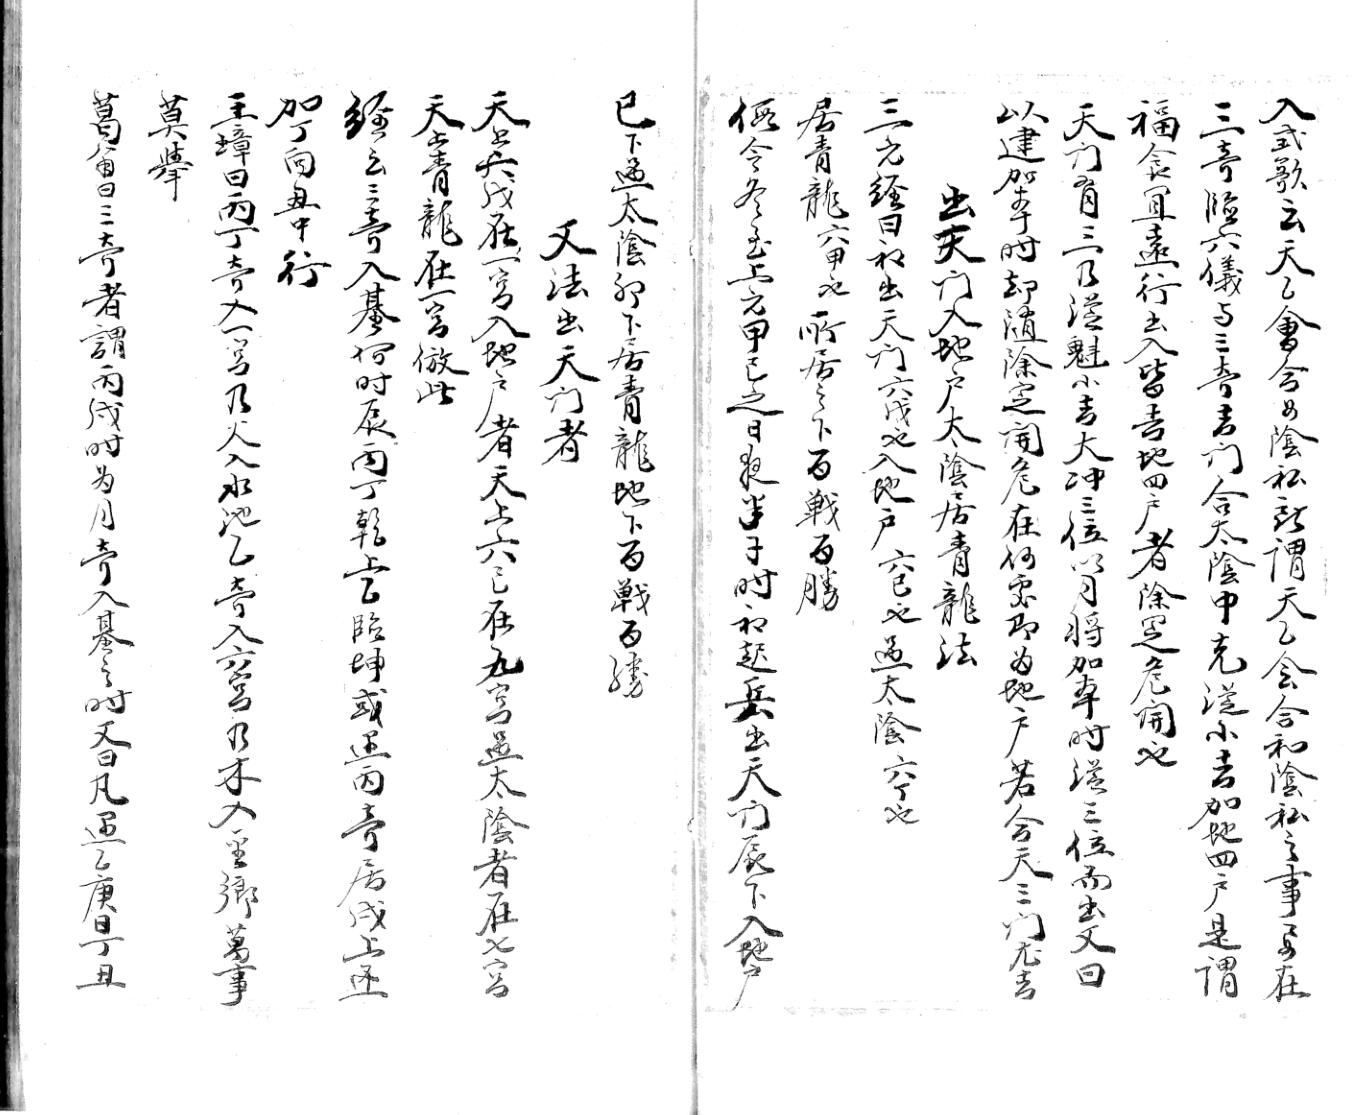 入式歌云天乙會合女陰私所謂天乙会合和陰私之事是在
三奇臨六儀与三奇吉門合太陰中克從小吉加地四戸是謂
福食宜遠行出入皆吉地四戸者除定危開也
天門有三乃從魁小吉大冲三位以月将加本時從三位而出又曰
以建加本時却随除定開危在何處即為地戸若合天三門尤吉
出天門入地戸太陰居青龍法
三元経曰初出天門六戊也入地戸六己也過太陰六丁也
居青龍六甲也所居之下百戦百勝
假令冬至上元甲己之日夜半子時初起兵出天門辰下入地戸
巳下過太陰卯下居青龍地下百戦百勝
又法出天門者
天上六戊在一宮入地戸者天上六己在九宮過太陰者在七宮
天上青龍在一宮倣此
経云三奇入墓何時辰丙丁乾上乙臨坤或逢丙奇居戌上逢
加丁向丑中行
王璋曰丙丁奇入一宮乃火入水池乙奇入六宮乃木入金郷萬事
莫挙
葛笛曰三奇者謂丙戌時為月奇入墓之時又曰凡遇乙庚日丁丑